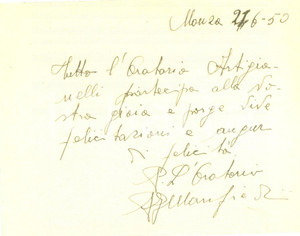 Monza 27/6-50
Tutto l'Oratorio Artigia-
nelli partecipa alla vo-
stra gioia e porge vive
felicitazioni e auguri
di felicità
P. L'Oratorio